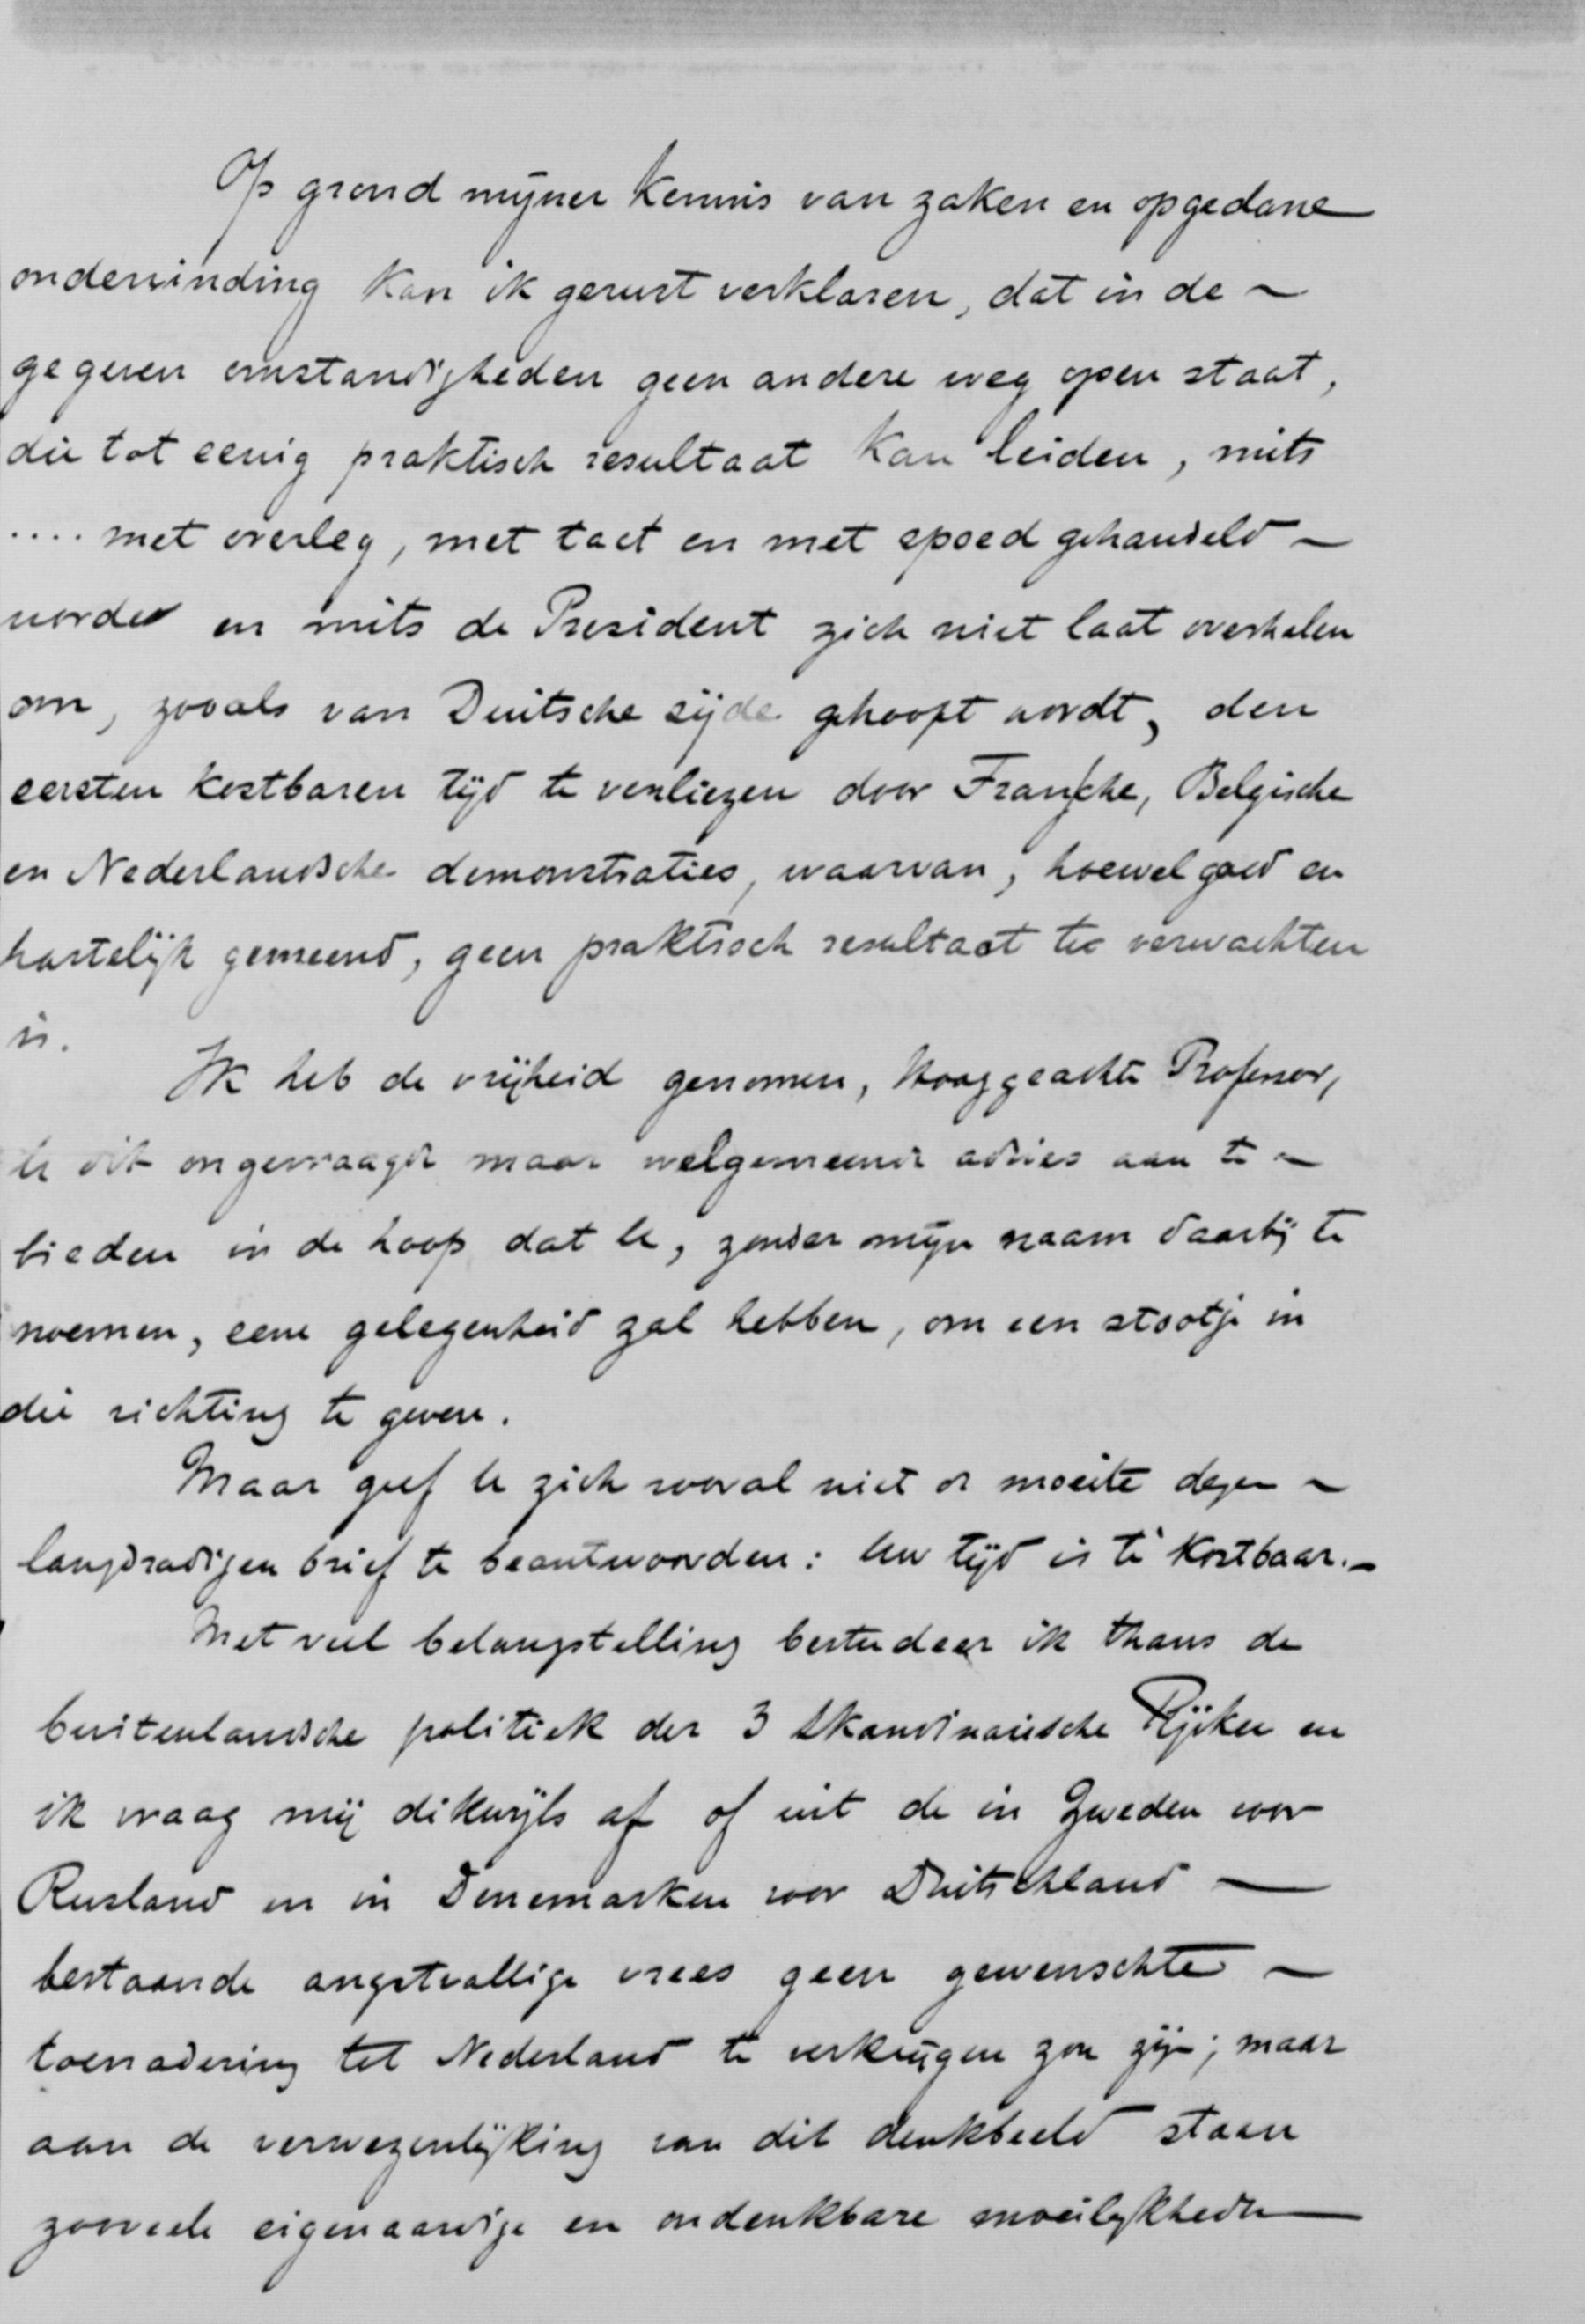 Op grond mijner kennis van zaken en opgedane
ondervinding kan ik gerust verklaren, dat in de ~
gegeven omstandigheden geen andere weg open staat,
die tot eenig praktisch resultaat kan leiden, mits
.... met overleg, met tact en met spoed gehandeld -
worde en mits de President zich niet laat overhalen
om, zooals van Duitsche zijde gehoopt wordt, den
eersten kostbaren tijd te verliezen door Fransche, Belgische
en Nederlandsche demonstraties, waarvan, hoewel goed en
hartelijk gemeend, geen praktisch resultaat te verwachten
is.
Ik heb de vrijheid genomen, Hooggeachte Professor,
U dit ongevraagde maar welgemeende advies aan te -
bieden in de hoop dat U, zonder mijn naam daarbij te
noemen, eene gelegenheid zal hebben, om een stootje in
die richting te geven.
Maar geef U zich vooral niet de moeite dezen -
langdradigen brief te beantwoorden: Uw tijd is té kostbaar. -
Met veel belangstelling bestudeer ik thans de
buitenlandsche politiek der 3 Skandinavische Rijken en
ik vraag mij dikwijls af of uit de in Zweden voor
Rusland en in Denemarken voor Duitschland —
bestaande angstvallige vrees geen gewenschte -
toenadering tot Nederland te verkrijgen zou zijn; maar
aan de verwezenlijking van dit denkbeeld staan
zooveele eigenaardige en ondenkbare moeilijkheden